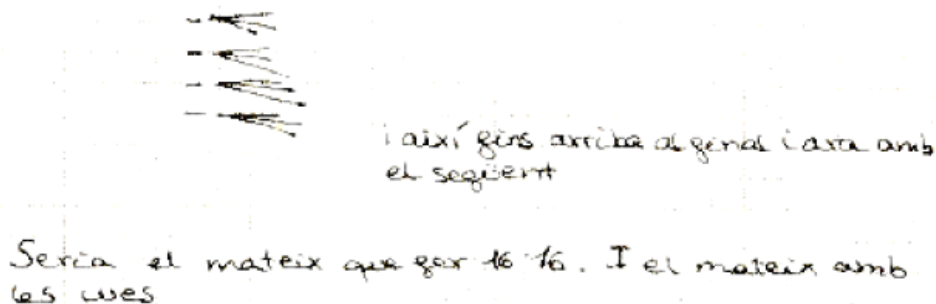 i així fins arriba al final i ara amb
el següent
Seria el mateix que fer 16·16. I el mateix amb
les